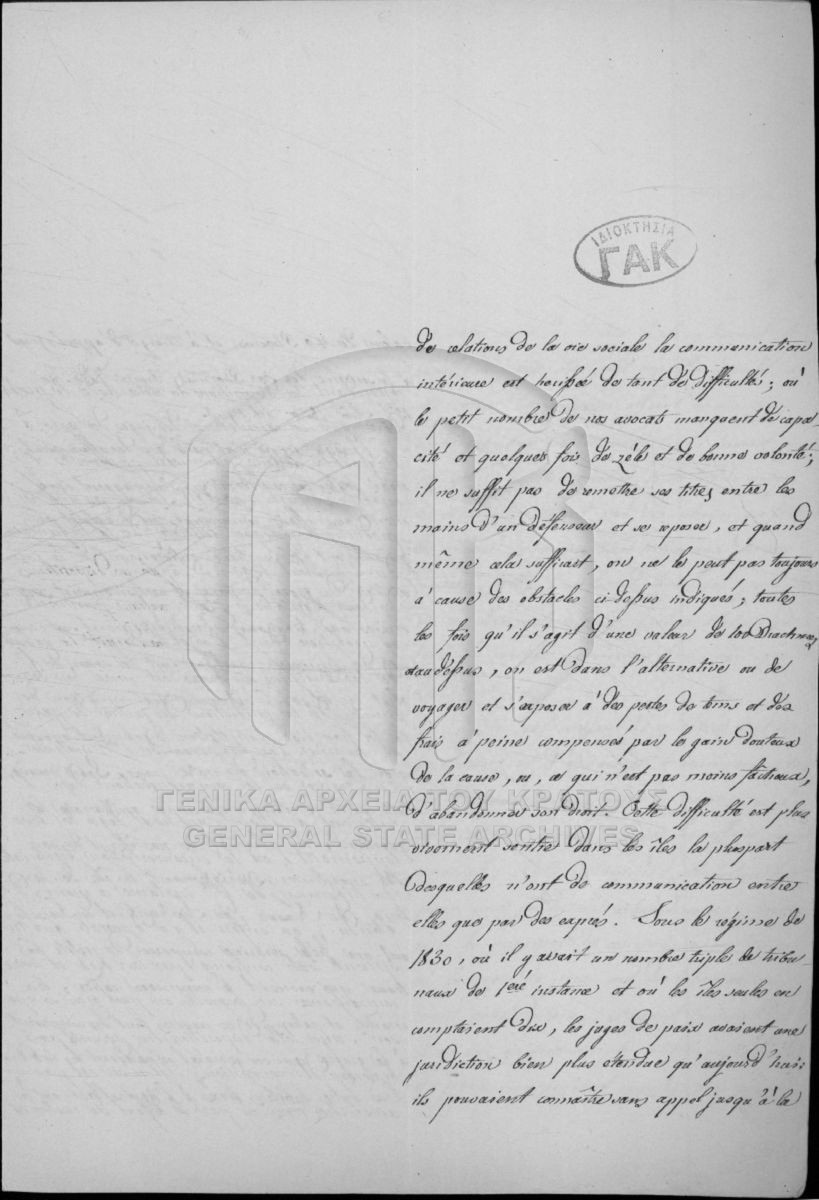 ΙΔΙΟΚΤΗΣΙΑ
ΓΑΚ
de relations de la vie sociale la communication
intérieure est herissée de tant de difficultés; où
le petit nombre de nos avocats manquent de capa-
cité et quelques fois de zèle et de bonne volonté;
il ne suffit pas de remettre ses titres entre les
mains d'un défenseur et se reposer, et quand
même cela sufficait, on ne le peut pas toujours
à cause des obstacles ci-dessus indiqués; toutes
les fois qu'il s'agit d'une valeur de 100 Drachmes
et au dessus, on est dans l'alternative ou de
voyager et s'exposer à des pertes de tems et des
frais à peine compensés par le gain douteux
de la cause, ou, ce qui n'est pas moins fâcheux,
d'abandonner son droit. Cette difficulté est plus
vivement sentie dans les îles la pluspart
desquelles n'ont de communication entre
elles que par des exprès. Sous le régime de
1830, où il y avait un nombre triple de tribu-
naux de 1ere instance et où les îles seules en
comptaient dix, les juges de paix avaient une
jurisdiction bien plus étendue qu'aujourd'hui;
ils pouvaient connaître sans appel jusqu'à la
ΓΕΝΙΚΑ ΑΡΧΕΙΑ ΤΟΥ ΚΡΑΤΟΥΣ
GENERAL STATE ARCHIVES